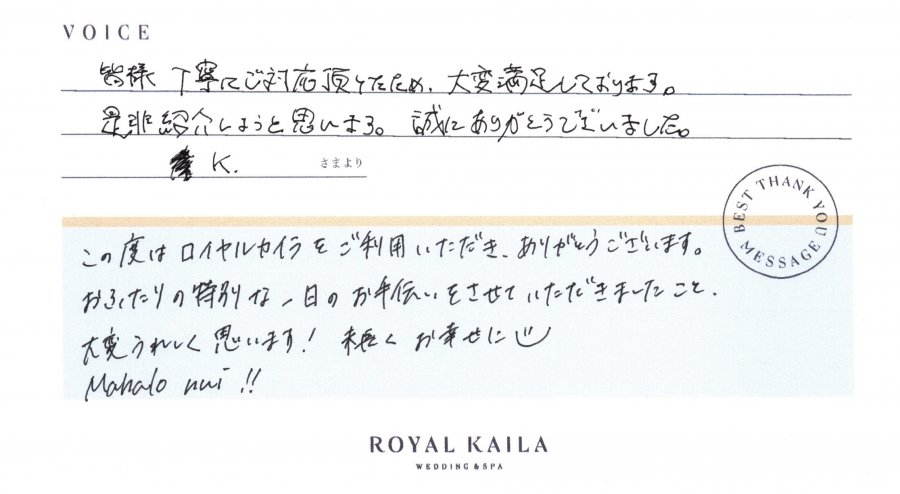 VOICE
皆様 丁寧にご対応頂けたため、大変満足しております。
是非紹介しようと思います。 誠にありがとうございました。
K. さまより
BEST THANK YOU MESSAGE
この度はロイヤルカイラをご利用いただき、ありがとうございます。
おふたりの特別な一日のお手伝いをさせていただきましたこと、
大変うれしく思います! 末長くお幸せに
Mahalo nui!!
ROYAL KAILA
WEDDING & SPA